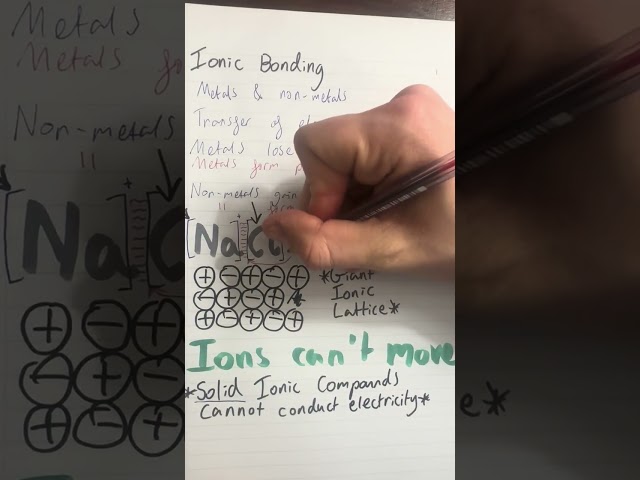 Ionic Bonding
Metals & non-metals
Transfer of
Metals lose
Metals form
Non-metals gain
"
[Na]+ [Cl]
+ - + - +
- + - +
+ - + - +
*Giant
Ionic
Lattice*
Ions can't move
*Solid Ionic Compounds
Cannot conduct electricity*